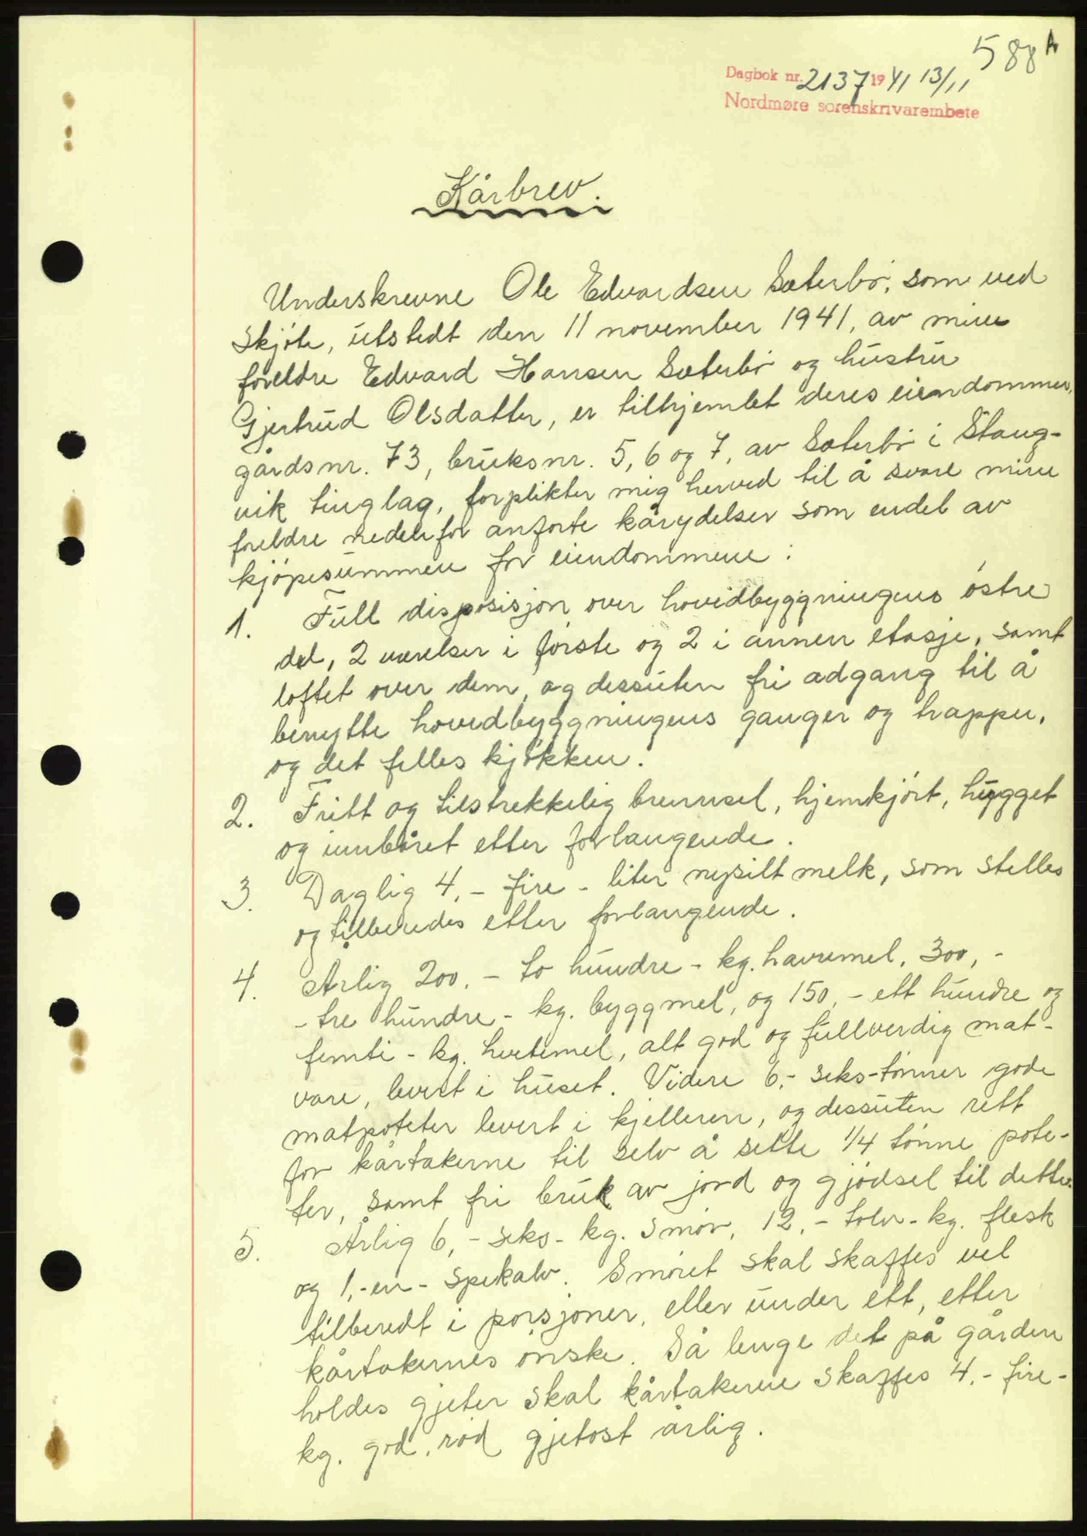 588 A
Dagbok nr. 2137 1941 13/11
Nordmøre sorenskrivarembete
Kårbrev.
Underskrevne Ole Edvardsen Sæterbø, som ved
skjøte, utstedt den 11 november 1941, av mine
foreldre Edvard Hansen Sæterbø og hustru
Gjertrud Olsdatter, er tilhjemlet deres eiendommer,
gårdsnr. 73, bruksnr. 5, 6 og 7, av Sæterbø i Stang-
vik tinglag, forplikter mig herved til å svare mine
foreldre nedenfor anførte kårydelser som endel av
kjøpesummen for eiendommene:
1. Full disposisjon over hovidbyggningens østre
del, 2 værelser i første og 2 i annen etasje, samt
loftet over dem, og dessuten fri adgang til å
benytte hovedbyggningens ganger og trapper,
og det felles kjøkken.
2. Fritt og tilstrekkelig brensel, hjemkjørt, hugget
og innbåret etter forlangende.
3. Daglig 4, - fire - liter nysilt melk, som stelles
og tilberedes etter forlangende.
4. Årlig 200, - to hundre - kg. havremel, 300, -
- tre hundre - kg. byggmel, og 150, - ett hundre og
femti - kg. hvetemel, alt god og fullverdig mat-
vare, levert i huset. Videre 6,- seks-tønner gode
matpoteter levert i kjelleren, og dessuten rett
for kårtakerne til selv å sette 1/4 tønne pote-
ter, samt fri bruk av jord og gjødsel til dette.
5. Årlig 6, - seks - kg. smør, 12, - tolv - kg. flesk
og 1,-en- spekalv. Smøret skal skaffes vel
tilberedt i porsjoner, eller under ett, etter
kårtakernes ønske. Så lenge det på gården
holdes gjeter skal kårtakerne skaffes 4,- fire -
kg. god, rød gjetost årlig.